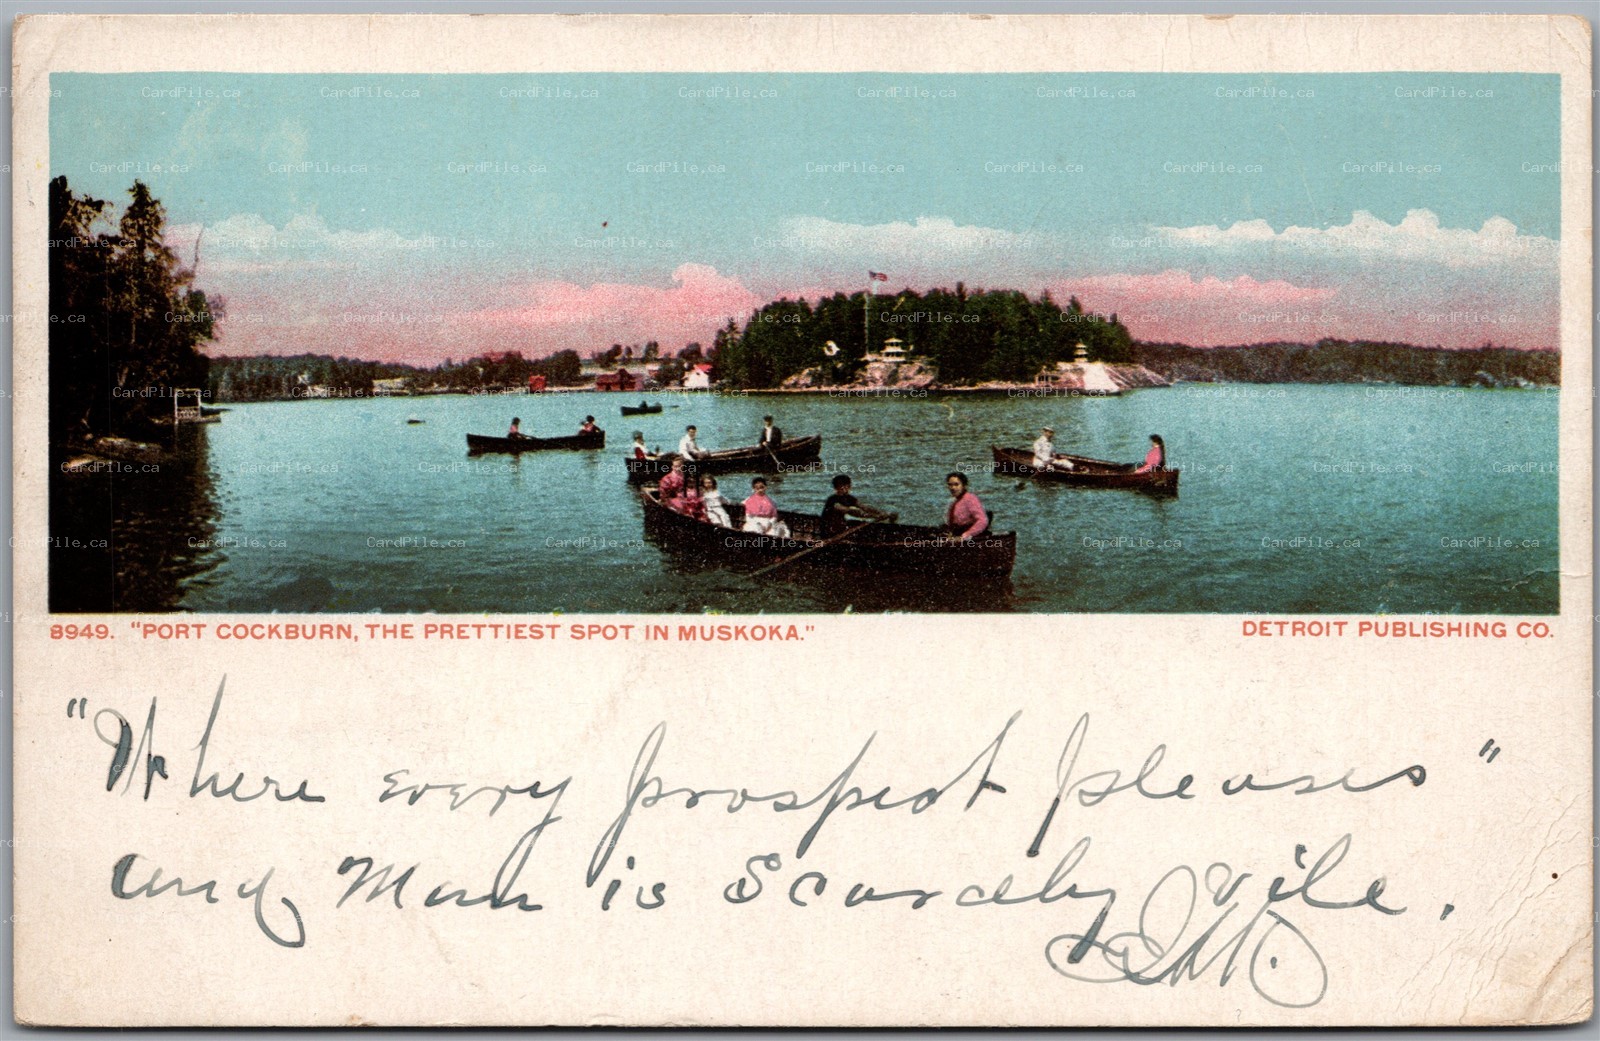 8949. "PORT COCKBURN, THE PRETTIEST SPOT IN MUSKOKA."
DETROIT PUBLISHING CO.
"Where every prospect pleases"
and Man is Scarcely Vile.
CardPile.ca